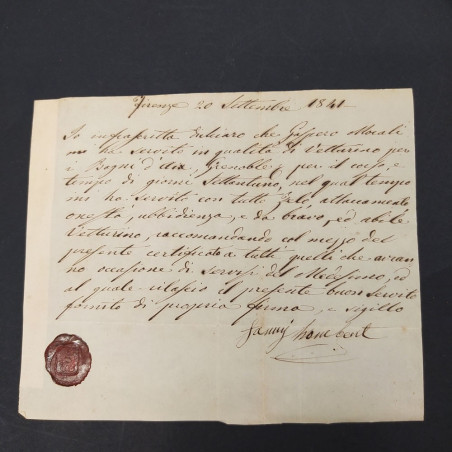 Firenze 20 Settembre 1841
Io infrascritta dichiaro che Gaspero
mi ha servito in qualità di Vetturino per
i Bagni d'Aix, Grenoble, e per il corso, e
tempo di giorni Settantuno, nel qual tempo
mi ha servito con tutto zelo, attaccamento
onestà, ubbidienza, e da bravo, ed abile
Vetturino, raccomandando col mezzo del
presente certificato a tutti quelli che avran
no occasione di servirsi del Medesimo, ed
al quale rilascio il presente buon Servito
fornito di propria firma, e sigillo
Fanny